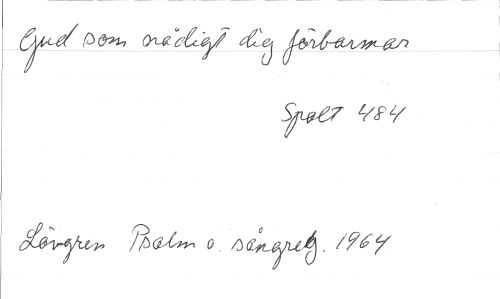 Gud som nådigt dig förbarmar
Spalt 484
Lövgren Psalm o. sångreg. 1964